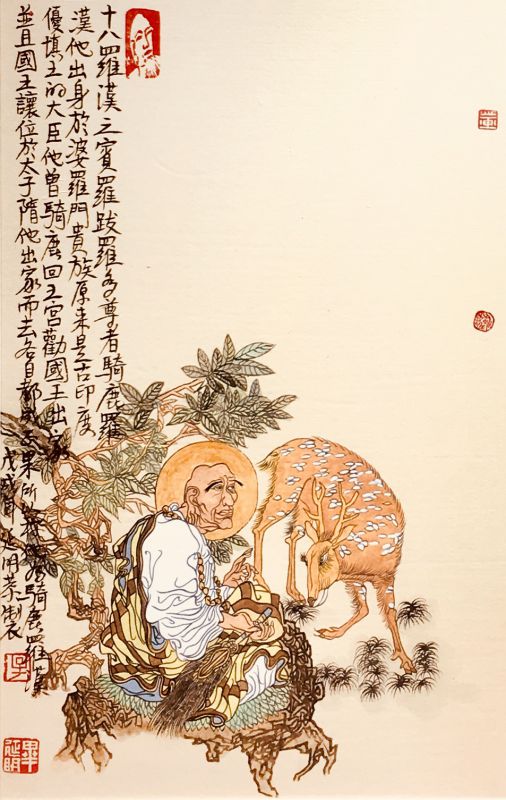 十八羅漢之賓羅跋羅多尊者騎鹿羅
漢他出身於婆羅門貴族原来是古印度
優填王的大臣他曾騎鹿回王宫勸國王出家
並且國王讓位於太子隋他出家而去各自都
果所騎鹿羅漢
戊戌延明恭製